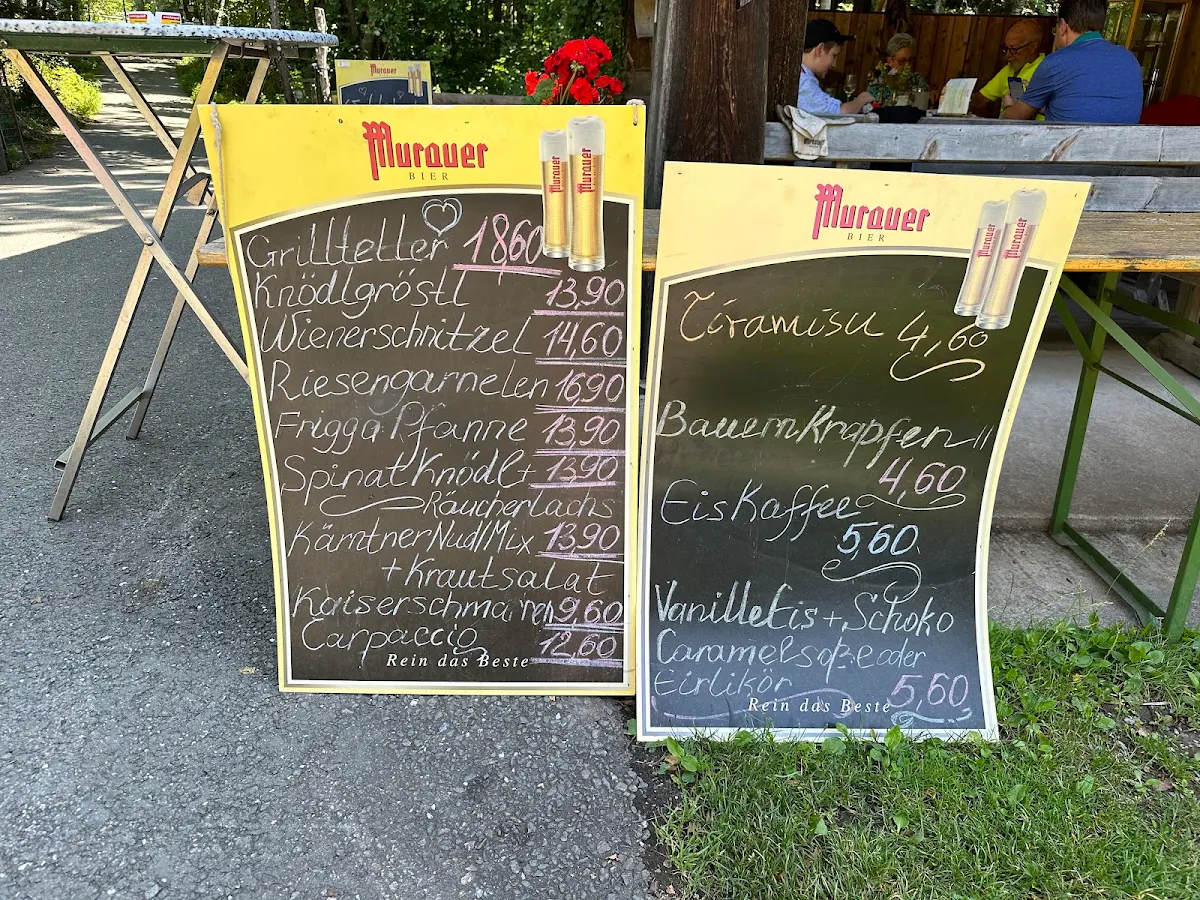 Murauer
BIER
Murauer
Murauer
Grillteller 18,60
Knödlgröstl 13,90
Wienerschnitzel 14,60
Riesengarnelen 16,90
Frigga Pfanne 13,90
Spinat Knödl + 13,90
Räucherlachs
Kärntner Nudl Mix 13,90
+ Krautsalat
Kaiserschmarren 9,60
Carpaccio 12,60
Rein das Beste
Murauer
BIER
Murauer
Murauer
Tiramisu 4,60
Bauern Krapfen
4,60
Eis Kaffee
5,60
Vanille Eis + Schoko
Caramelsoße oder
Eirlikör 5,60
Rein das Beste
Murauer